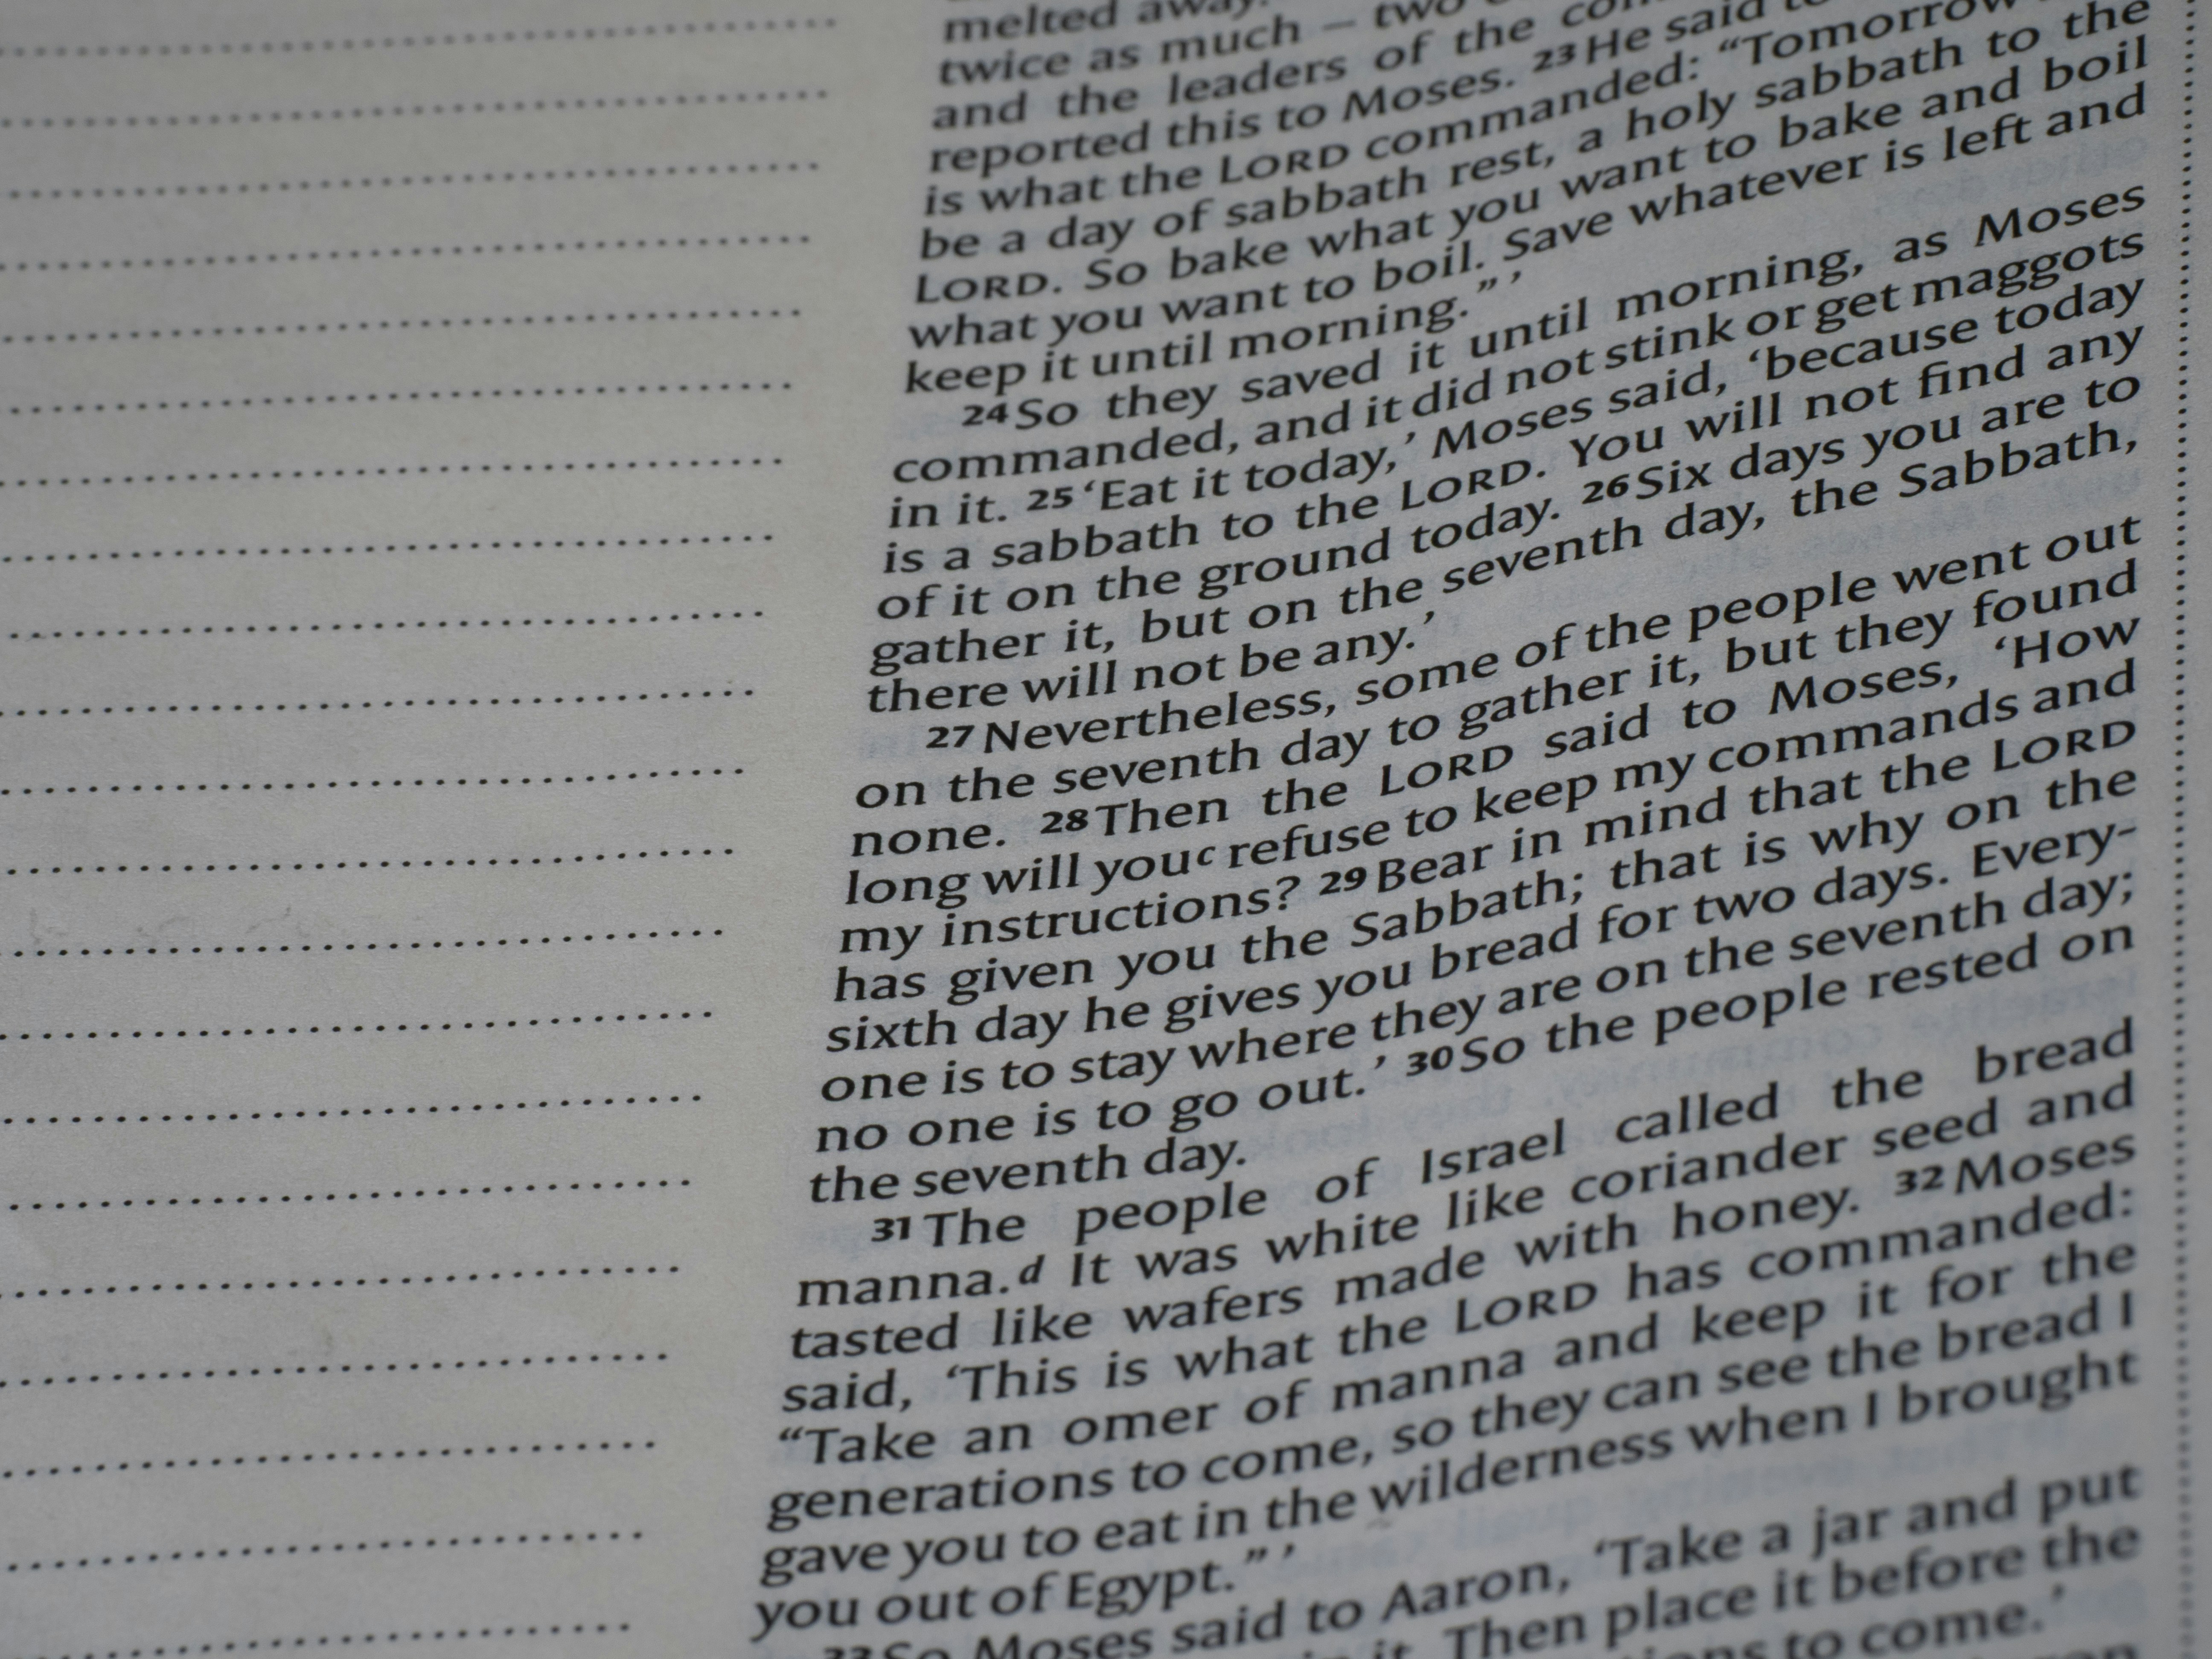 melted away.
twice as much – two
and the leaders of the
reported this to Moses. 23 He said to
is what the LORD commanded: “Tomorrow
be a day of sabbath rest, a holy sabbath to the
LORD. So bake what you want to bake and boil
what you want to boil. Save whatever is left and
keep it until morning.” ’
24 So they saved it until morning, as Moses
commanded, and it did not stink or get maggots
in it. 25 ‘Eat it today,’ Moses said, ‘because today
is a sabbath to the LORD. You will not find any
of it on the ground today. 26 Six days you are to
gather it, but on the seventh day, the Sabbath,
there will not be any.’
27 Nevertheless, some of the people went out
on the seventh day to gather it, but they found
none. 28 Then the LORD said to Moses, ‘How
long will you c refuse to keep my commands and
my instructions? 29 Bear in mind that the LORD
has given you the Sabbath; that is why on the
sixth day he gives you bread for two days. Every-
one is to stay where they are on the seventh day;
no one is to go out.’ 30 So the people rested on
the seventh day.
31 The people of Israel called the bread
manna. d It was white like coriander seed and
tasted like wafers made with honey. 32 Moses
said, ‘This is what the LORD has commanded:
“Take an omer of manna and keep it for the
generations to come, so they can see the bread I
gave you to eat in the wilderness when I brought
you out of Egypt.” ’
33 So Moses said to Aaron, ‘Take a jar and put
in it. Then place it before the
to come.’